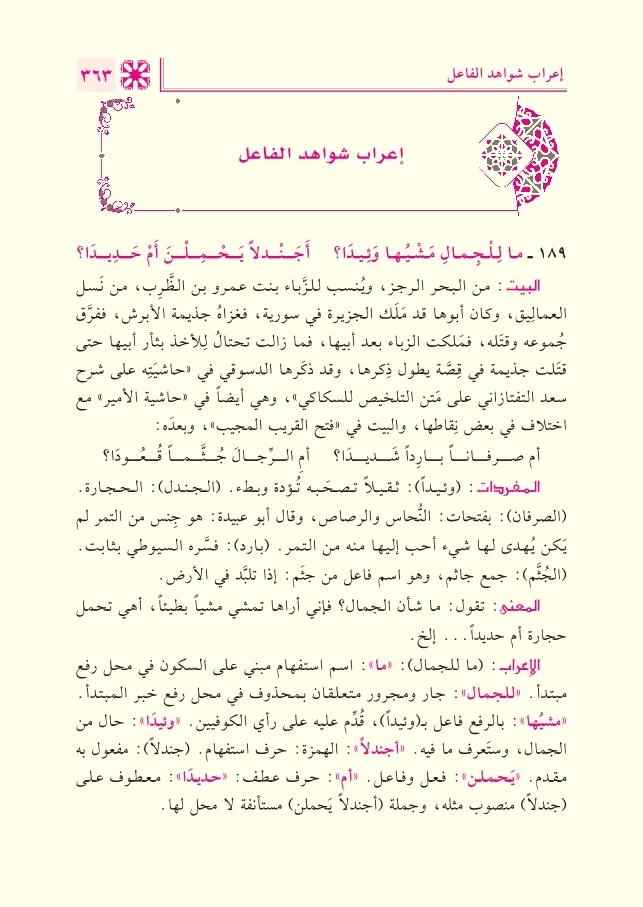 إعراب شواهد الفاعل
٣٦٣
إعراب شواهد الفاعل
١٨٩ ـ ما لِلْجِمالِ مَشْيُها وَئِيدَا؟ أَجَنْدلاً يَحْمِلْنَ أَمْ حَدِيدَا؟
البيت: من البحر الرجز، ويُنسب للزَّباء بنت عمرو بن الظَّرِب، من نَسل
العمالِيق، وكان أبوها قد مَلَك الجزيرة في سورية، فغزاهُ جذيمة الأبرش، ففرَّق
جُموعه وقتَله، فمَلكت الزباء بعد أبيها، فما زالت تحتالُ لِلأخذ بثأر أبيها حتى
قتَلت جذيمة في قِصَّة يطول ذِكرها، وقد ذكَرها الدسوقي في «حاشيَتِه على شرح
سعد التفتازاني على مَتن التلخيص للسكاكي»، وهي أيضاً في «حاشية الأمير» مع
اختلاف في بعض نِقاطها، والبيت في «فتح القريب المجيب»، وبعدَه:
أم صرفاناً بارِداً شَديدَا؟ أمِ الرِّجالَ جُثَّماً قُعُودَا؟
المفردات: (وئيداً): ثقيلاً تصحَبه تُؤدة وبطء. (الجندل): الحجارة.
(الصرفان): بفتحات: النُّحاس والرصاص، وقال أبو عبيدة: هو جِنس من التمر لم
يَكن يُهدى لها شيء أحب إليها منه من التمر. (بارد): فسَّره السيوطي بثابت.
(الجُثَّم): جمع جاثم، وهو اسم فاعل من جثَم: إذا تلبَّد في الأرض.
المعنى: تقول: ما شأن الجمال؟ فإني أراها تمشي مشياً بطيئاً، أهي تحمل
حجارة أم حديداً... إلخ.
الإعراب: (ما للجمال): «ما»: اسم استفهام مبني على السكون في محل رفع
مبتدأ. «للجمال»: جار ومجرور متعلقان بمحذوف في محل رفع خبر المبتدأ.
«مشيُها»: بالرفع فاعل بـ(وئيداً)، قُدِّم عليه على رأي الكوفيين. «وئيدَا»: حال من
الجمال، وستَعرف ما فيه. «أجندلاً»: الهمزة: حرف استفهام. (جندلاً): مفعول به
مقدم. «يَحملن»: فعل وفاعل. «أم»: حرف عطف: «حديدَا»: معطوف على
(جندلاً) منصوب مثله، وجملة (أجندلاً يَحملن) مستأنفة لا محل لها.